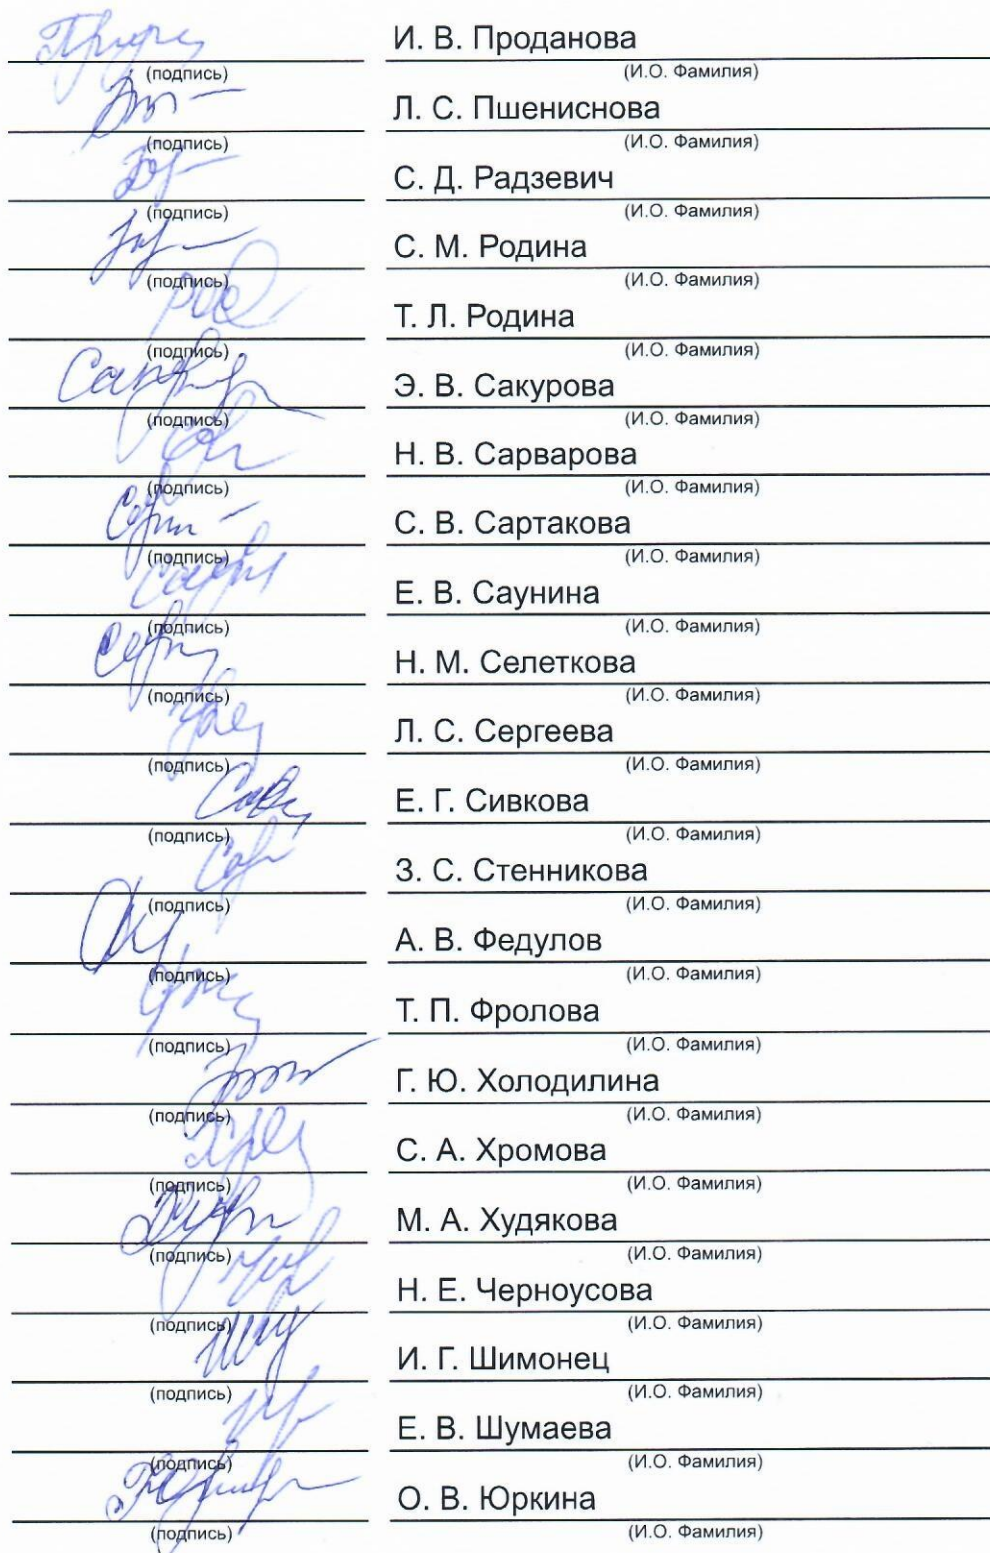 И. В. Проданова
(подпись) (И.О. Фамилия)
Л. С. Пшениснова
(подпись) (И.О. Фамилия)
С. Д. Радзевич
(подпись) (И.О. Фамилия)
С. М. Родина
(подпись) (И.О. Фамилия)
Т. Л. Родина
(подпись) (И.О. Фамилия)
Э. В. Сакурова
(подпись) (И.О. Фамилия)
Н. В. Сарварова
(подпись) (И.О. Фамилия)
С. В. Сартакова
(подпись) (И.О. Фамилия)
Е. В. Саунина
(подпись) (И.О. Фамилия)
Н. М. Селеткова
(подпись) (И.О. Фамилия)
Л. С. Сергеева
(подпись) (И.О. Фамилия)
Е. Г. Сивкова
(подпись) (И.О. Фамилия)
З. С. Стенникова
(подпись) (И.О. Фамилия)
А. В. Федулов
(подпись) (И.О. Фамилия)
Т. П. Фролова
(подпись) (И.О. Фамилия)
Г. Ю. Холодилина
(подпись) (И.О. Фамилия)
С. А. Хромова
(подпись) (И.О. Фамилия)
М. А. Худякова
(подпись) (И.О. Фамилия)
Н. Е. Черноусова
(подпись) (И.О. Фамилия)
И. Г. Шимонец
(подпись) (И.О. Фамилия)
Е. В. Шумаева
(подпись) (И.О. Фамилия)
О. В. Юркина
(подпись) (И.О. Фамилия)